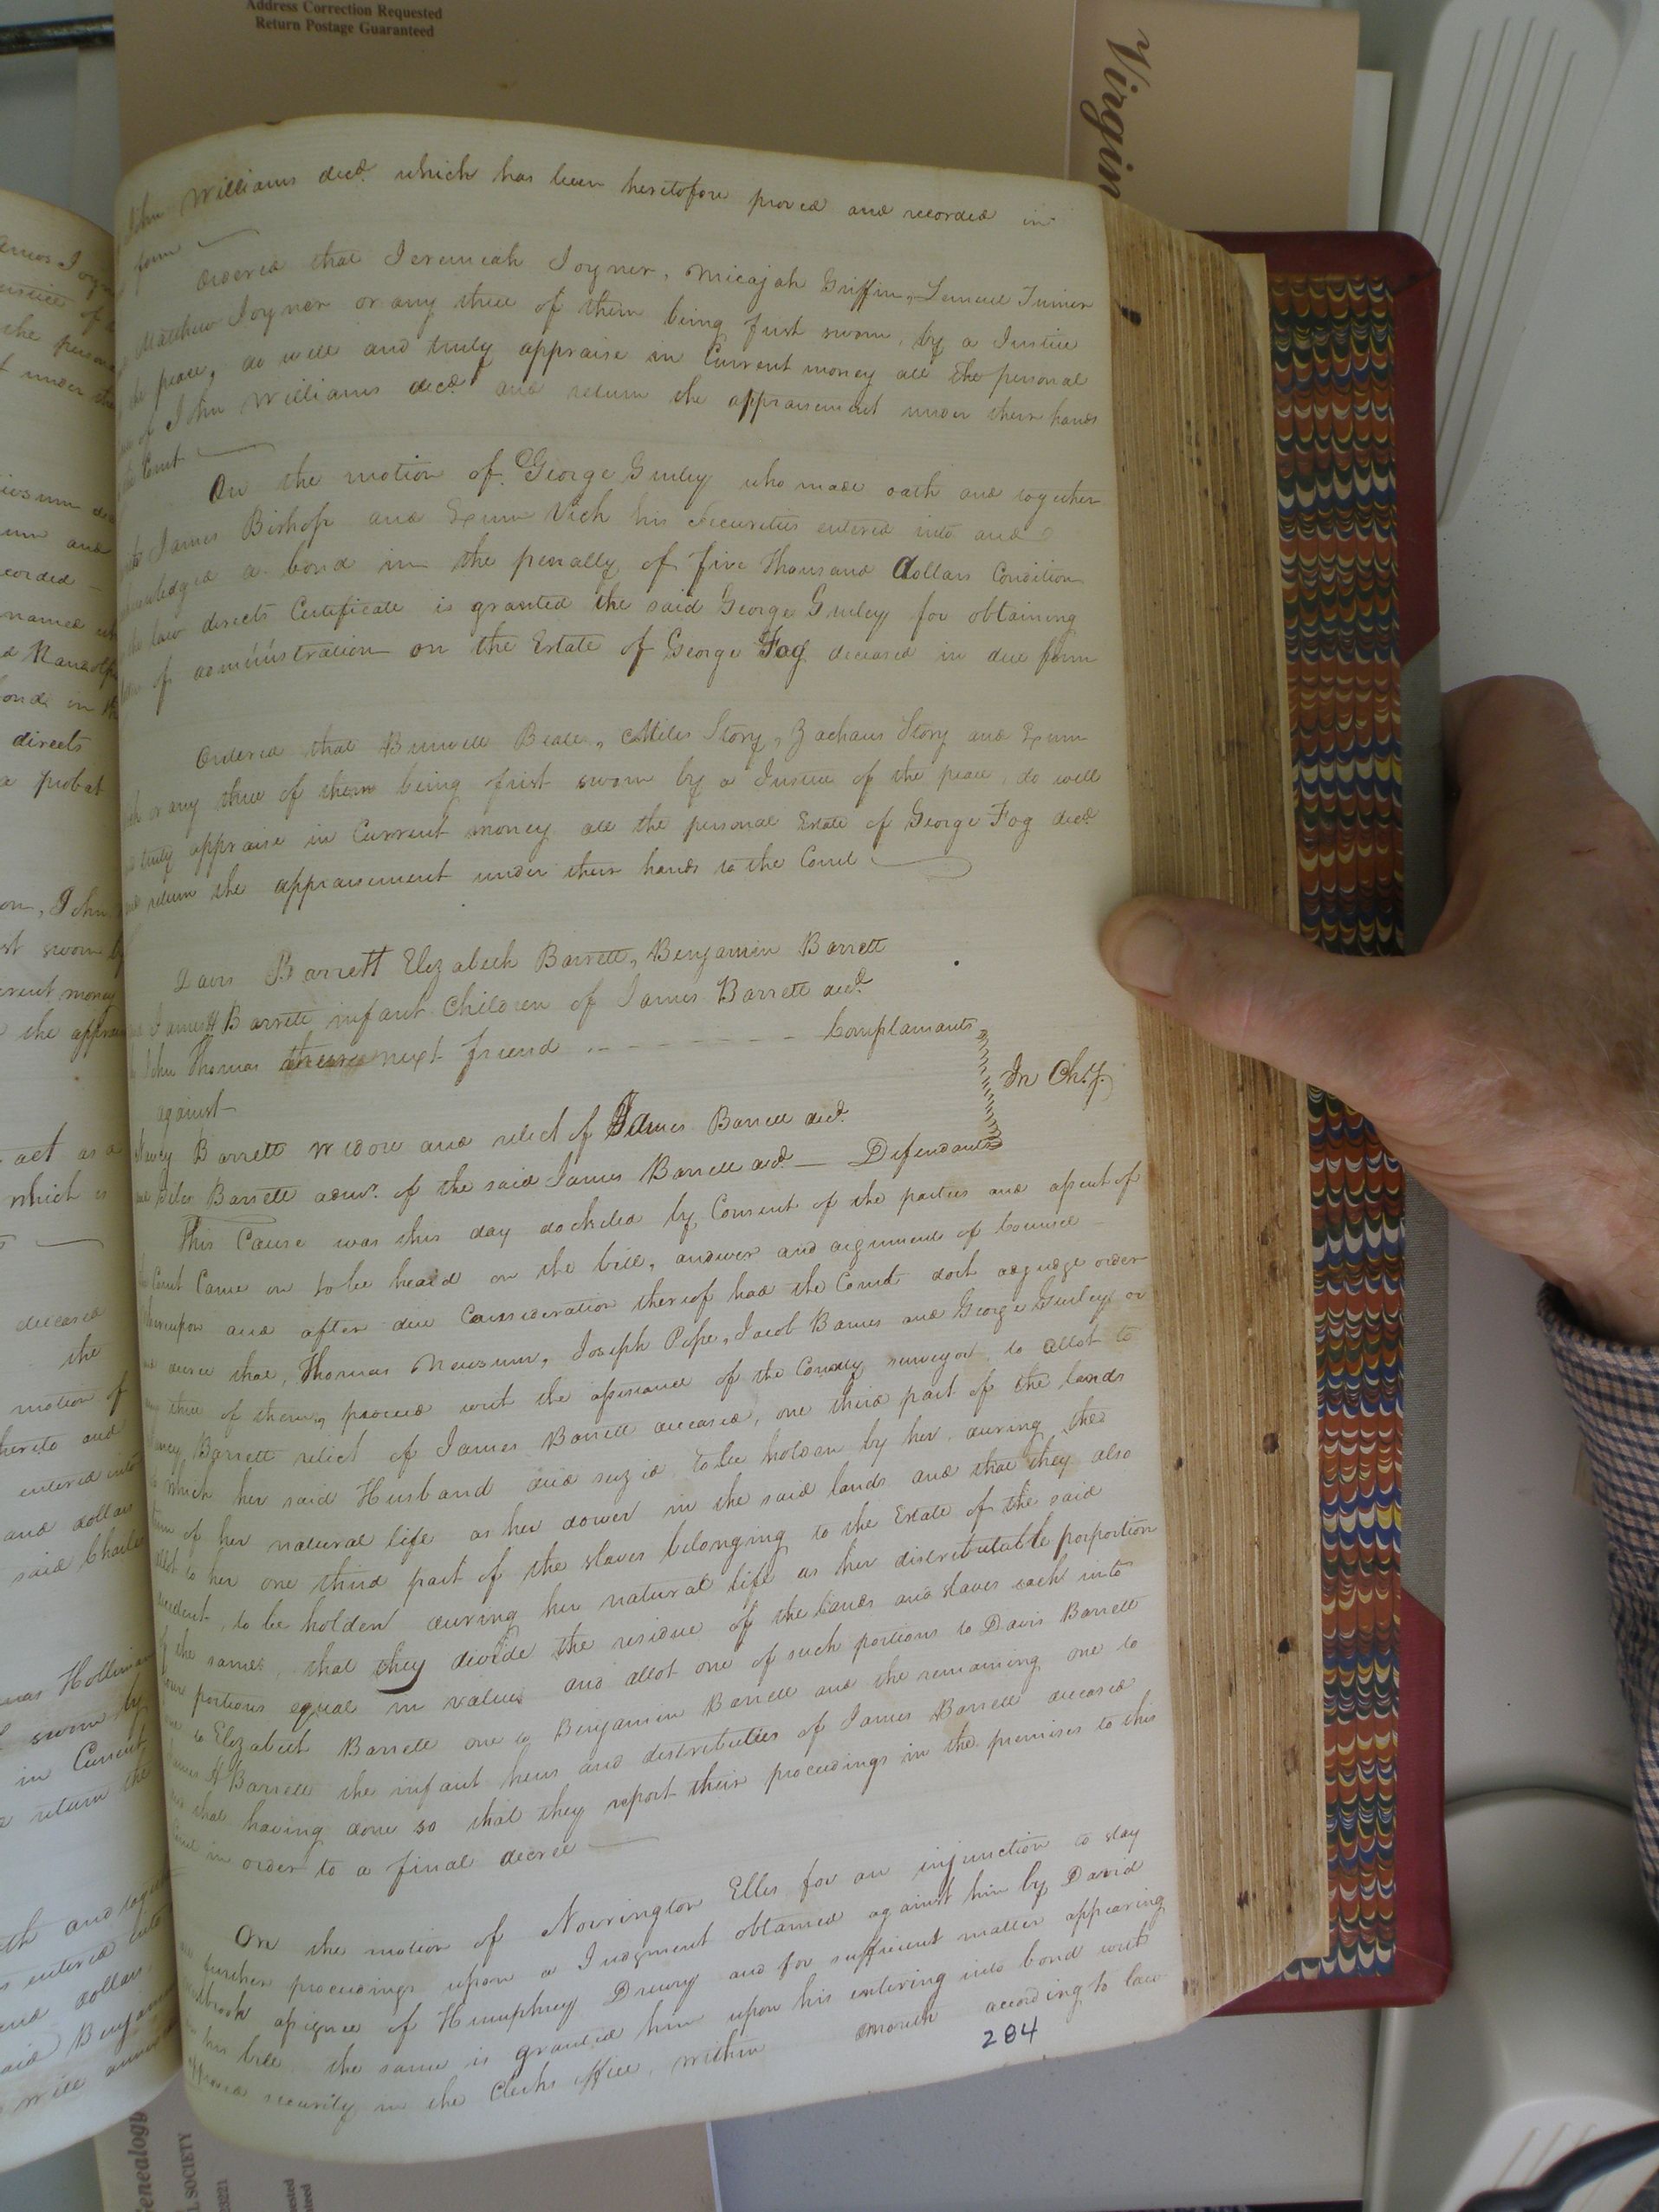 Address Correction Requested
Return Postage Guaranteed
Virgin
John Williams decd. which has been heretofore proved and recorded in
form
Ordered that Jeremiah Joyner, Micajah Griffin, Lemuel Turner
Matthew Joyner or any three of them being first sworn, by a Justice
the peace, do well and truly appraise in Current money all the personal
of John Williams decd. and return the appraisement under their hands
the Court
On the motion of George Gurley who made oath and together
James Bishop and Exum Vick his Securities entered into and
acknowledged a bond in the penalty of five Thousand dollars Condition
the law directs Certificate is granted the said George Gurley for obtaining
of administration on the Estate of George Fog deceased in due form
Ordered that Burwell Beale, Miles Story, Zachaus Story and Exum
or any three of them being first sworn by a Justice of the peace, do well
truly appraise in Current money all the personal Estate of George Fog decd.
and return the appraisement under their hands to the Court
Davis Barrett Elizabeth Barrett, Benjamin Barrett
James H Barrett infant Children of James Barrett decd.
John Thomas their next friend Complainants
In Chy.
against
Nancy Barrett Widow and relict of James Barrett decd.
Barrett admr. of the said James Barrett decd. Defendants
This Cause was this day docketed by Consent of the parties and assent of
Court Came on to be heard on the bill, answer and arguments of Counsel
Whereupon and after due Consideration thereof had the Court doth adjudge order
decree that, Thomas Newsum, Joseph Pope, Jacob Barnes and George Gurley or
any three of them, proceed with the assistance of the County surveyor to allot to
Nancy Barrett relict of James Barrett deceased, one third part of the lands
which her said Husband died seized to be holden by her during the
term of her natural life as her dower in the said lands and that they also
allot to her one third part of the slaves belonging to the Estate of the said
decedent, to be holden during her natural life as her distributable porportion
of the same, that they divide the residue of the lands and slaves each into
four portions equal in value and allot one of such portions to Davis Barrett
one to Elizabeth Barrett one to Benjamin Barrett and the remaining one to
James H Barrett the infant heirs and distributees of James Barrett deceased
and that having done so that they report their proceedings in the premises to this
Court in order to a final decree
On the motion of Norrington Elles for an injunction to stay
all further proceedings upon a Judgment obtained against him by David
assignee of Humphrey Drewry and for sufficient matter appearing
in his bill the same is granted him upon his entering into bond with
approved security in the Clerks office, within month according to law
284
directs
a probat
act as a
which is
deceased
the
motion of
hereto and
entered into
and dollars
said Charles
sworn by
in Current
return the
Genealogy
L SOCIETY
23221